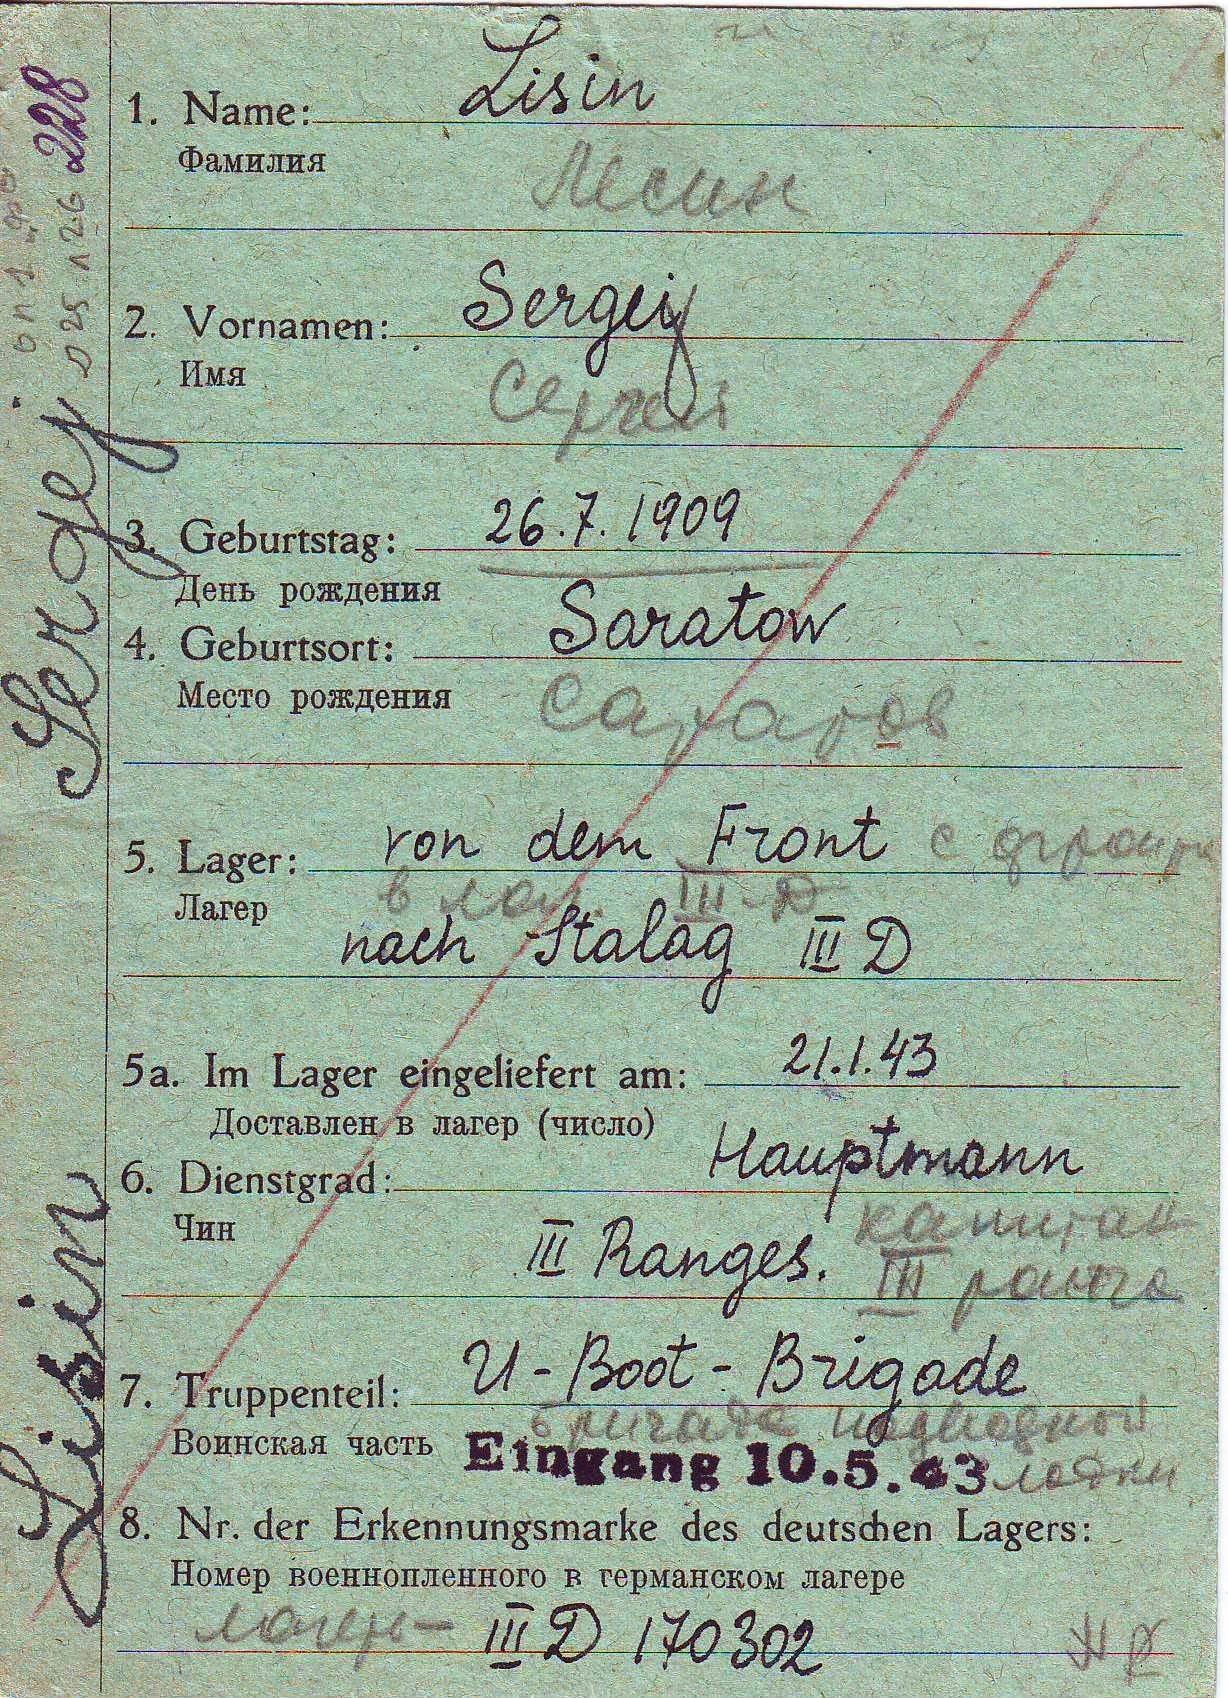 1. Name: Lisin
Фамилия
Лесин
2. Vornamen: Sergej
Имя
Сергей
3. Geburtstag: 26.7.1909
День рождения
4. Geburtsort: Saratow
Место рождения
Саратов
5. Lager: von dem Front с фронта
Лагер
в лаг. III D
nach Stalag III D
5a. Im Lager eingeliefert am: 21.1.43
Доставлен в лагер (число)
6. Dienstgrad: Hauptmann
Чин
III Ranges. капитан
III ранга
7. Truppenteil: U-Boot-Brigade
бригада подводной
Воинская часть Eingang 10.5.43 лодки
8. Nr. der Erkennungsmarke des deutschen Lagers:
Номер военнопленного в германском лагере
лагерь- III D 170302
Lisin Sergej
228